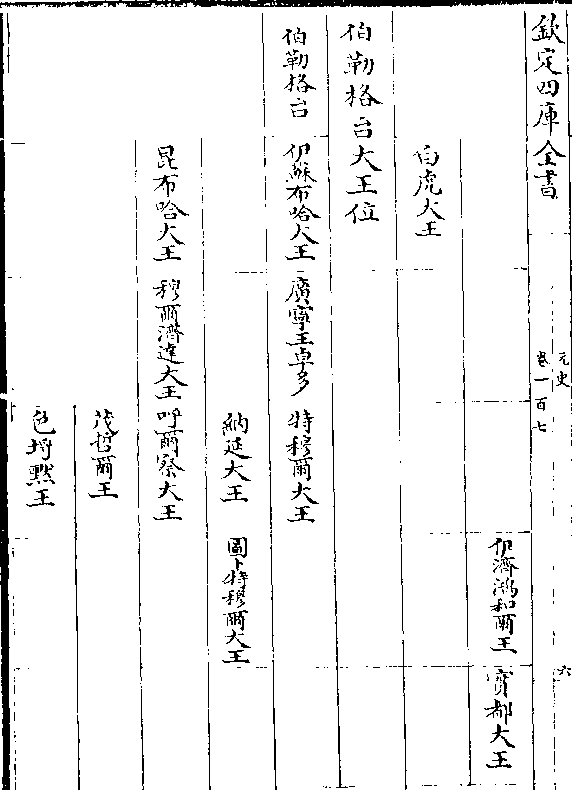 欽定四庫全書
元史
卷一百七
六
伊濟鴻和爾王
寶都大王
白虎大王
伯勒格台大王位
伯勒格台
伊蘇布哈大王
廣寧王卓多
特穆爾大王
納延大王
圖卜特穆爾大王
昆布哈大王
穆爾濟達大王
呼爾察大王
茂哲爾王
色埒默王